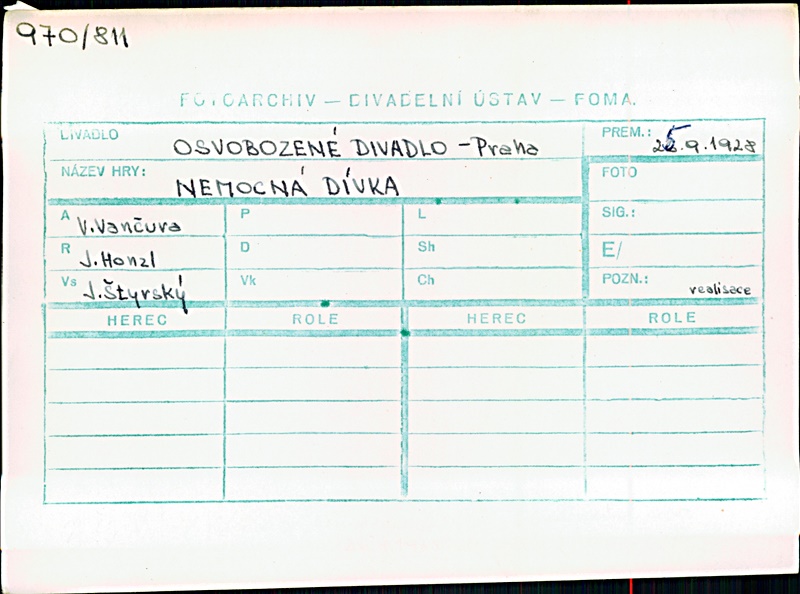 970/811
FOTOARCHIV — DIVADELNÍ ÚSTAV — FOMA
DIVADLO OSVOBOZENÉ DIVADLO - Praha PREM.: 25.9.1928
NÁZEV HRY: NEMOCNÁ DÍVKA FOTO
A V. Vančura P L SIG.:
R J. Honzl D Sh E/
Vs J. Štyrský Vk Ch POZN.: realisace
HEREC ROLE HEREC ROLE